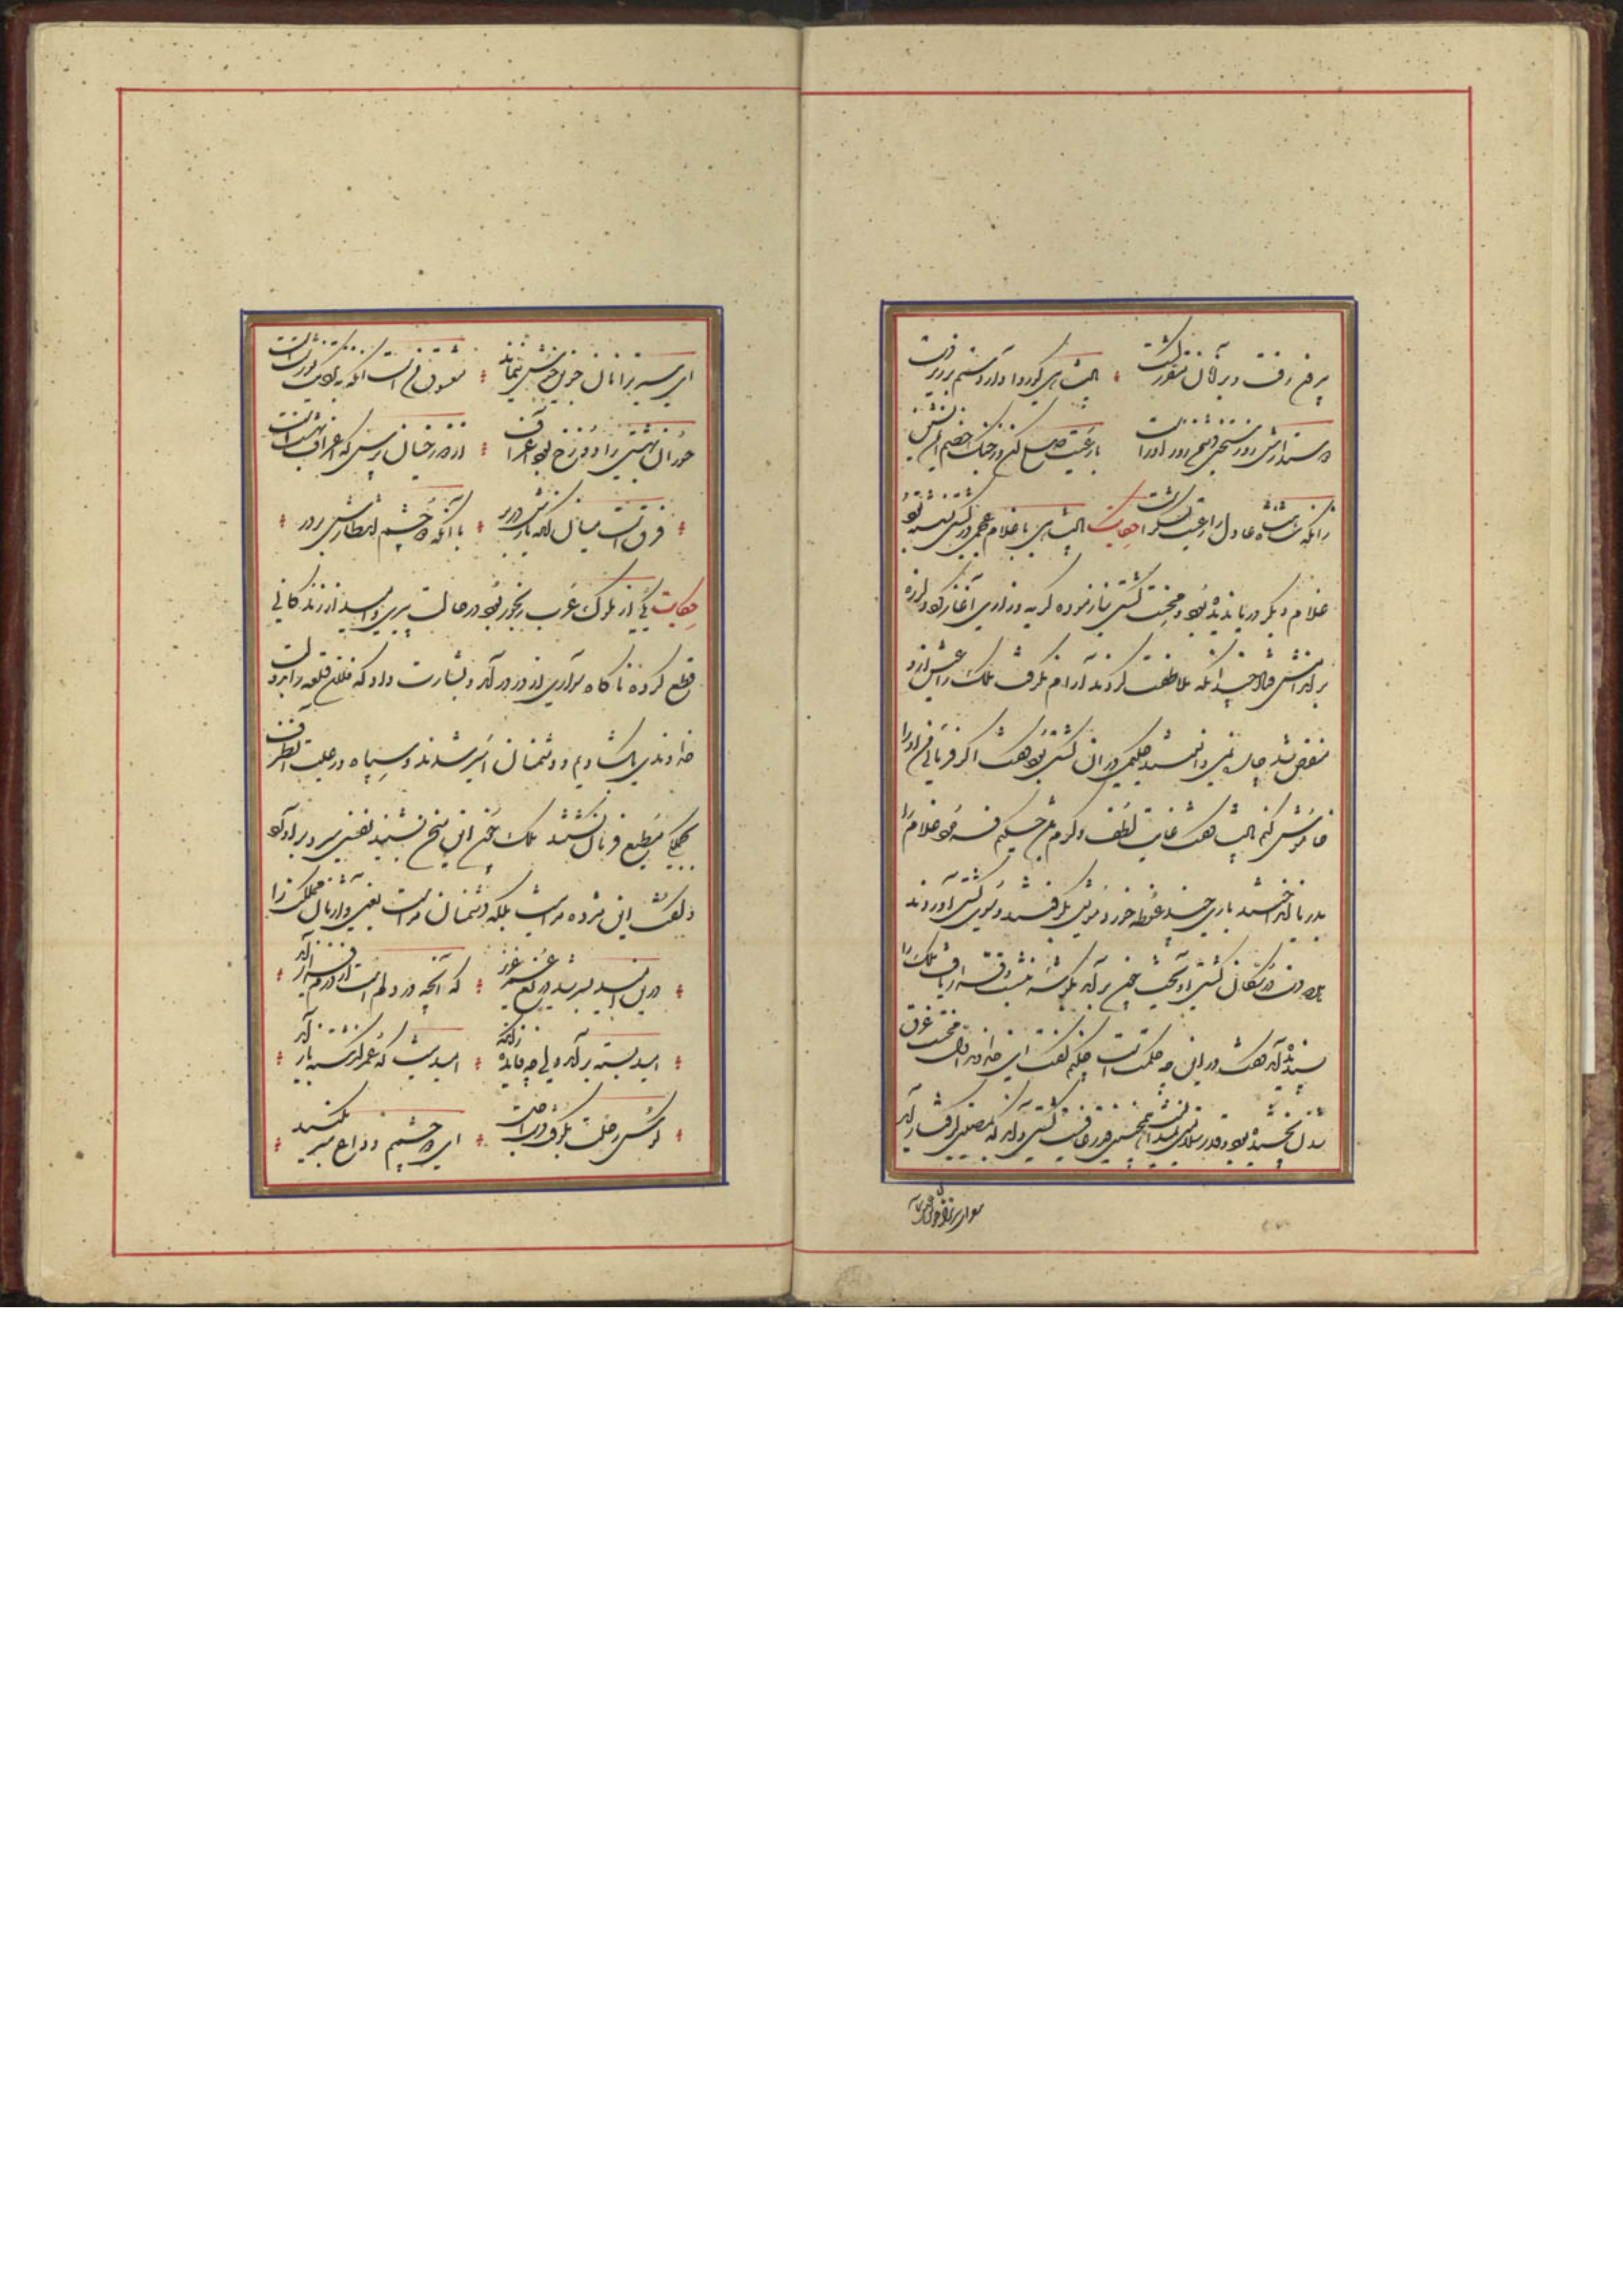 رفت و بر آنان مقرر گشت پادشاهی کو روا دارد ستم بر زیردست
دوستدارش روز سختی دشمن زورآورست با رعیت صلح کن وز جنگ خصم ایمن نشین
زانکه شاهنشاه عادل را رعیت لشکرست حکایت پادشاهی با غلام عجمی در کشتی نشسته بود
غلام دیگر دریا ندیده بود و محنت کشتی نیازموده گریه و زاری آغاز کرد و لرزه
بر اندامش فتاد چندانکه ملاطفت کردند آرام نگرفت ملک را عیش ازو
منغص شد چاره نمی دانستند حکیمی در آن کشتی بود گفت اگر فرمائی من او را
خاموش کنم پادشاه گفت غایت لطف و کرم باشد حکیم فرمود غلام را
بدریا انداختند باری چند غوطه خورد مویش بگرفتند و سوی کشتی آوردند
بدو دست در سکان کشتی آویخت چون بر آمد بگوشه بنشست و قرار یافت ملک را
پسندیده آمد گفت در این چه حکمت است حکیم گفت ای خداوند اول محنت غرق
شدن نچشیده بود و قدر سلامتی نمی دانست همچنین قدر عافیت کسی داند که بمصیبتی گرفتار آید
ای سیر ترا نان جوین خوش ننماید معشوق منست آنکه بنزدیک تو زشت است
حوران بهشتی را دوزخ بود اعراف از دوزخیان پرس که اعراف بهشت است
فرق است میان آنکه یارش در بر با آنکه دو چشم انتظارش بر در
حکایت یکی از ملوک عرب رنجور بود در حالت پیری و امید از زندگانی
قطع کرده ناگاه سواری از در در آمد و بشارت داد که فلان قلعه را بدولت
خداوندی بگشادیم و دشمنان اسیر شدند و سپاه و رعیت آن طرف
بجملگی مطیع فرمان گشتند ملک چون این سخن بشنید نفسی سرد بر آورد
و گفت این مژده مرا نیست بلکه دشمنان مراست یعنی وارثان مملکت را
درین امید بسر شد دریغ عمر عزیز که آنچه در دلم است از درم فراز آید
امید بسته بر آمد ولی چه فایده زانکه امید نیست که عمر گذشته باز آید
کوس رحلت بکوفت دست اجل ای دو چشمم وداع سر بکنید